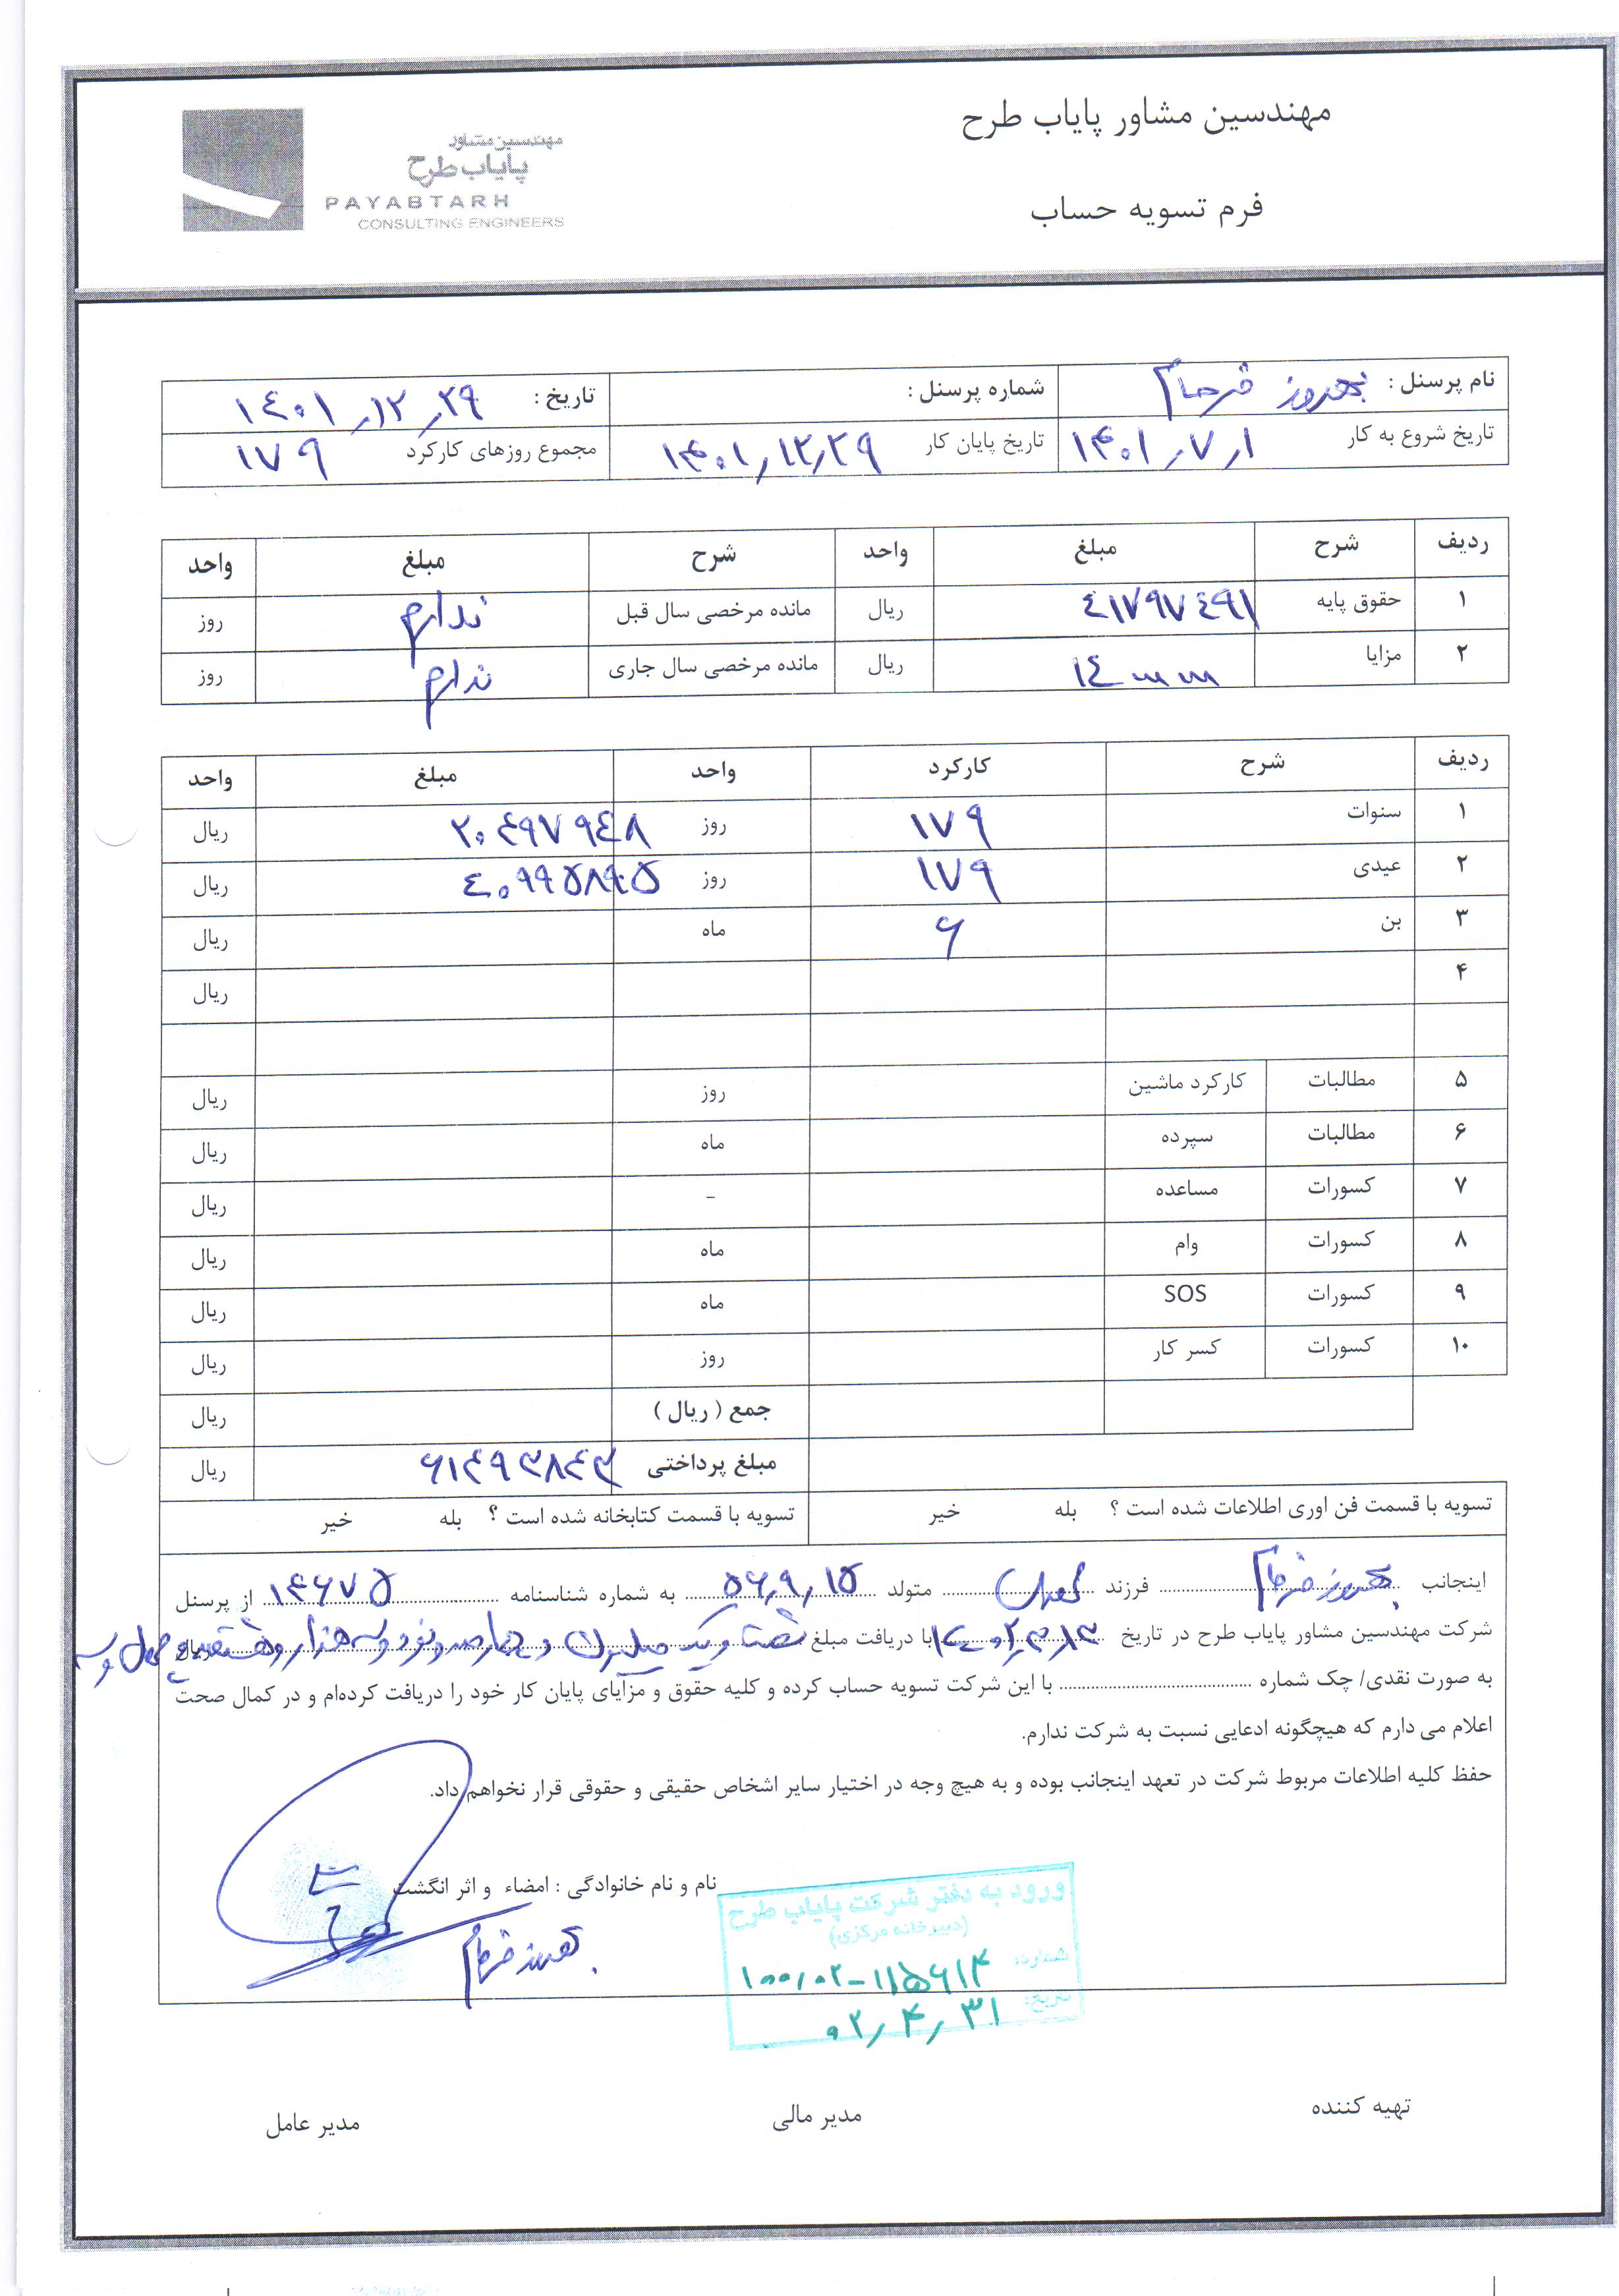 مهندسین مشاور پایاب طرح
فرم تسویه حساب
مهندسین مشاور
پایاب طرح
PAYABTARH
CONSULTING ENGINEERS
نام پرسنل : بهروز فرحام شماره پرسنل : تاریخ : ۱۴۰۱,۱۲,۲۹
تاریخ شروع به کار ۱۴۰۱,۷,۱ تاریخ پایان کار ۱۴۰۱,۱۲,۲۹ مجموع روزهای کارکرد ۱۷۹
ردیف شرح مبلغ واحد شرح مبلغ واحد
۱ حقوق پایه ۴۱۷۹۷۴۹۱ ریال مانده مرخصی سال قبل ندارم روز
۲ مزایا ریال مانده مرخصی سال جاری ندارم روز
ردیف شرح کارکرد واحد مبلغ واحد
۱ سنوات ۱۷۹ روز ۲۰۴۹۷۹۴۸ ریال
۲ عیدی ۱۷۹ روز ۴۰۹۹۵۸۹۵ ریال
۳ بن ۶ ماه ریال
۴ ریال
۵ مطالبات کارکرد ماشین روز ریال
۶ مطالبات سپرده ماه ریال
۷ کسورات مساعده - ریال
۸ کسورات وام ماه ریال
۹ کسورات SOS ماه ریال
۱۰ کسورات کسر کار روز ریال
جمع ( ریال ) ریال
مبلغ پرداختی ۶۱۴۹۳۸۴۳ ریال
تسویه با قسمت فن اوری اطلاعات شده است ؟ بله خیر تسویه با قسمت کتابخانه شده است ؟ بله خیر
اینجانب بهروز فرحام فرزند متولد ۵۶,۹,۱۵ به شماره شناسنامه ۱۴۶۷۵ از پرسنل
شرکت مهندسین مشاور پایاب طرح در تاریخ با دریافت مبلغ شصت و یک میلیون و چهارصد و نود و سه هزار و هشتصد و چهل و سه ریال
به صورت نقدی/ چک شماره با این شرکت تسویه حساب کرده و کلیه حقوق و مزایای پایان کار خود را دریافت کرده‌ام و در کمال صحت
اعلام می دارم که هیچگونه ادعایی نسبت به شرکت ندارم.
حفظ کلیه اطلاعات مربوط شرکت در تعهد اینجانب بوده و به هیچ وجه در اختیار سایر اشخاص حقیقی و حقوقی قرار نخواهم داد.
نام و نام خانوادگی : امضاء و اثر انگشت
بهروز فرحام
ورود به دفتر شرکت پایاب طرح
(دبیرخانه مرکزی)
شماره: ۱۰۰,۰۲-۱۱۵۶۱۴
تاریخ: ۰۲,۴,۳۱
تهیه کننده مدیر مالی مدیر عامل